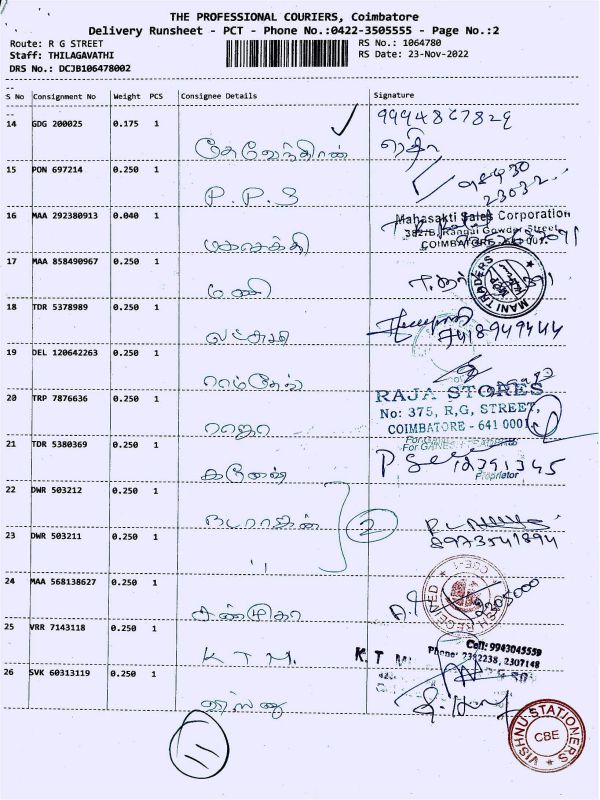 THE PROFESSIONAL COURIERS, Coimbatore
Delivery Runsheet - PCT - Phone No.:0422-3505555 - Page No.:2
Route: R G STREET RS No.: 1064780
Staff: THILAGAVATHI RS Date: 23-Nov-2022
DRS No.: DCJB106478002
--
S No Consignment No Weight PCS Consignee Details Signature
--
14 GDG 200025 0.175 1 9994867829
15 PON 697214 0.250 1
P. P. S
16 MAA 292380913 0.040 1 Mahasakti Sales Corporation
382/B, Rangai Gowder Street,
COIMBATORE - 641 001.
மகாசக்தி
17 MAA 858490967 0.250 1
மணி
MANI TRADERS
18 TDR 5378989 0.250 1
7418949444
லட்சுமி
19 DEL 120642263 0.250 1
ராம்தேவ்
20 TRP 7876636 0.250 1 RAJA STORES
No: 375, R,G, STREET,
COIMBATORE - 641 001
ராஜா
21 TDR 5380369 0.250 1
12391345
Proprietor
கணேஷ்
22 DWR 503212 0.250 1
நடராஜன் 2
23 DWR 503211 0.250 1 8973541894
〃
24 MAA 568138627 0.250 1
சண்முகா
25 VRR 7143118 0.250 1 Cell: 9943045559
Phone: 2382238, 2307148
K T M. K. T M
26 SVK 60313119 0.250 1
விஷ்ணு
11
VISHNU STATIONERS
CBE